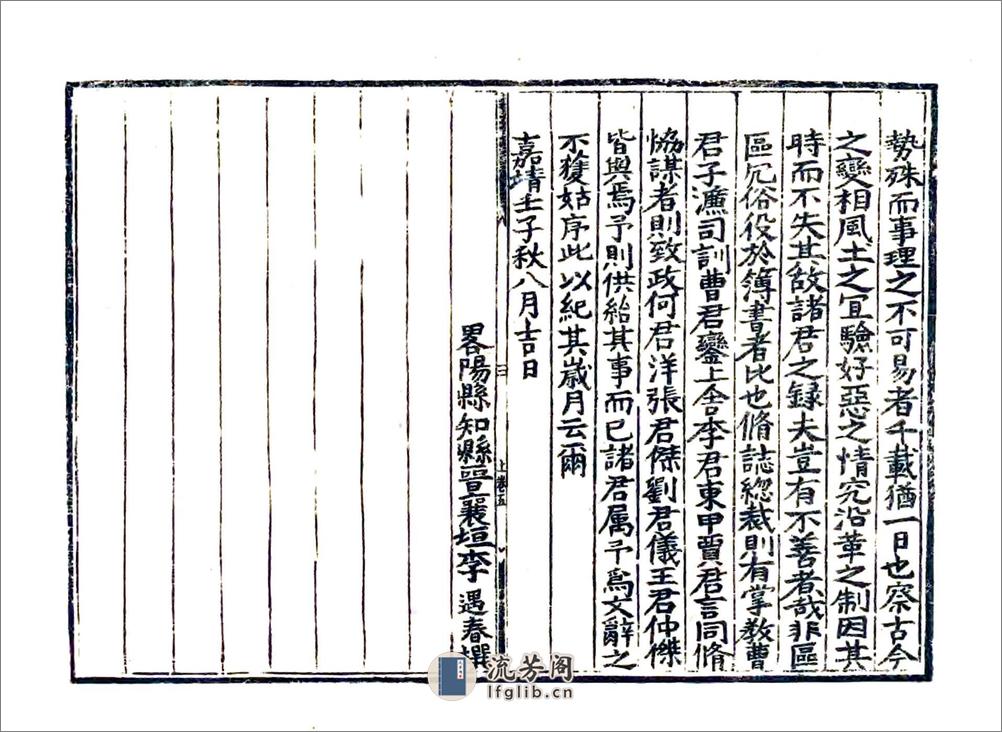 勢殊而事理之不可易者千載猶一日也察古今
之變相風土之宜驗好惡之情究沿革之制因其
時而不失其故諸君之録夫豈有不善者哉非區
區冗俗役於簿書者比也脩誌緫裁則有掌教曹
君子濂司訓曹君鑾上舍李君東甲賈君言同脩
恊謀者則致政何君洋張君傑劉君儀王君仲傑
皆與焉予則供給其事而已諸君属予爲文辭之
不獲姑序此以紀其歲月云爾
嘉靖壬子秋八月吉日
畧陽縣知縣晉襄垣李遇春撰
流芳阁
lfglib.cn